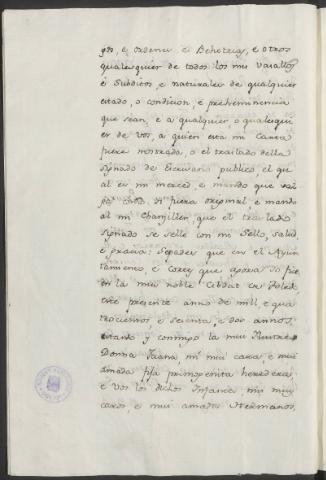 gos, e ordenes e Behetrias, e otros
qualesquier de todos los mis Vasallos
é Subditos, e naturales de qualquier
estado, o condicion, e preheminencia
que sean, e a qualquier o qualesqui
er de vos, a quien esta mi Carta
fuere mostrada, o el traslado della
signado de Escrivano publico, el qu
al es mi merced, e mando que val
ga como si fuera original, e mando
al mi Chanciller, que el traslado
signado se selle con mi Sello, salud
e gracia: Sepades que en el Ayun
tamiento, e Cortes que agora Yo fice
en la mui noble Cibdat de Toledo
este presente anno de mill, e qua
trocientos, e sesenta, e dos annos,
estando y conmigo la mui Illustre
Donna Juana, mi mui cara, e mui
amada fija primogenita heredera,
e vos los dichos Infantes mis mui
caros, e mui amados Hermanos,